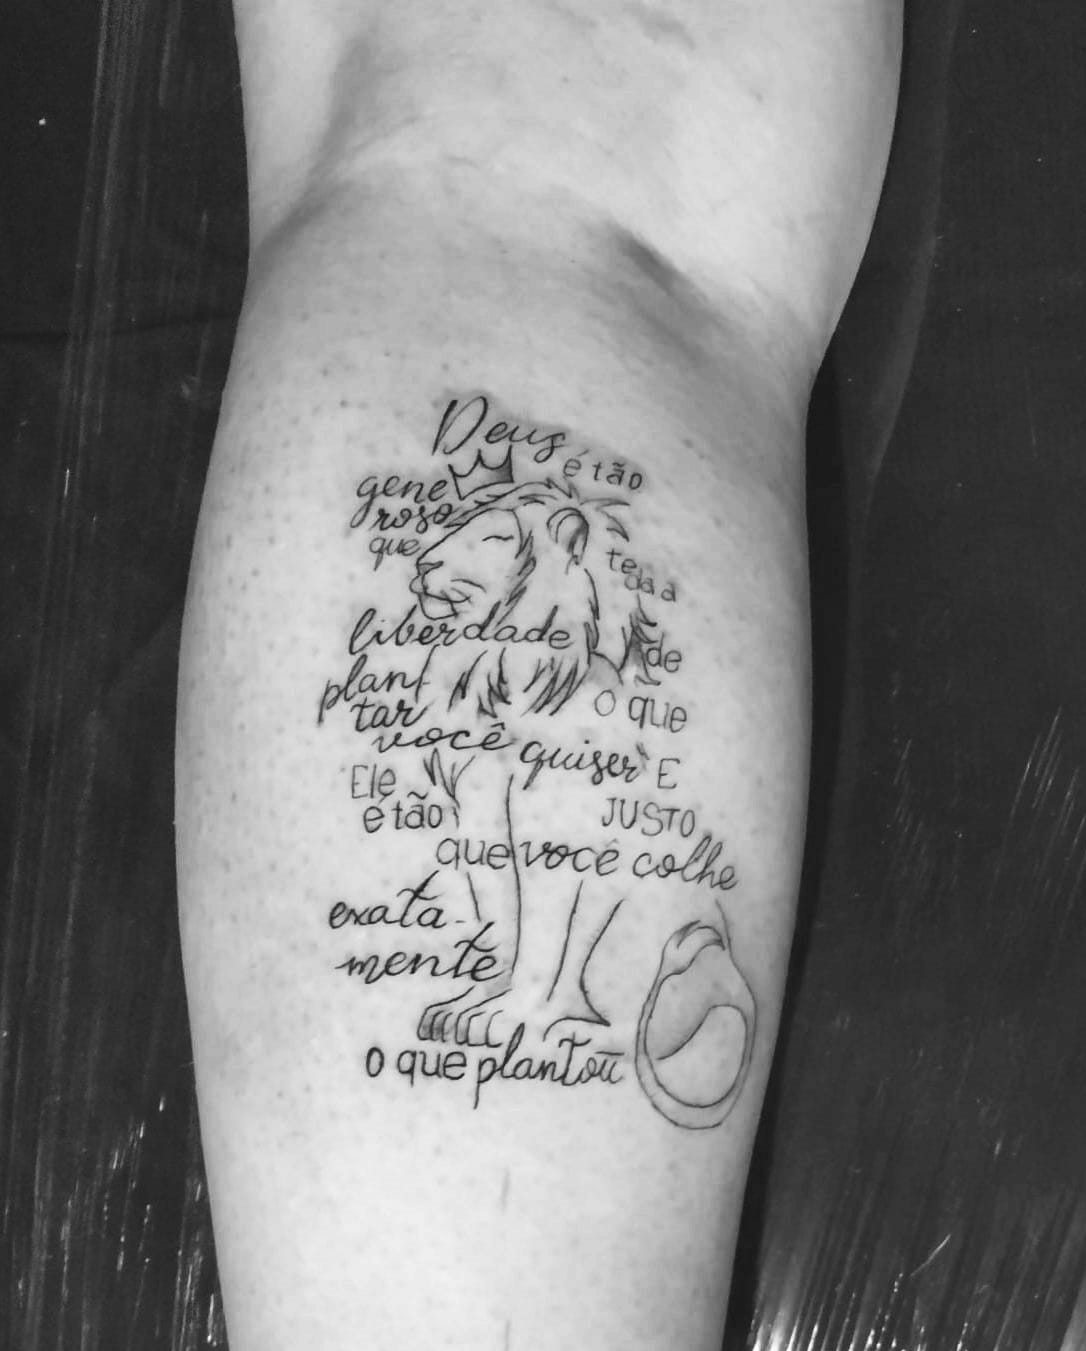 Deus
é tão
gene
roso
que
te dá a
liberdade
de
plan
tar
o que
você quiser E
Ele
é tão
JUSTO
que você colhe
exata-
mente
o que plantou